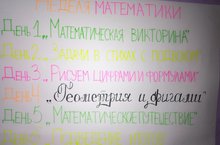 НЕДЕЛЯ МАТЕМАТИКИ
ДЕНЬ 1 „МАТЕМАТИЧЕСКАЯ ВИКТОРИНА"
ДЕНЬ 2„ ЗАДАЧИ В СТИХАХ С
ДЕНЬ 3„ РИСУЕМ ЦИФРАМИ И ФОРМУЛАМИ"
ДЕНЬ 4 „Геометрия и
ДЕНЬ 5„ МАТЕМАТИЧЕСКОЕ ПУТЕШЕСТВИЕ"